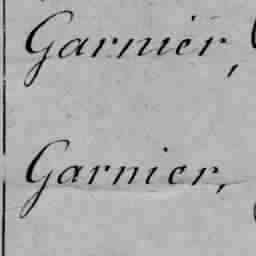 Garnier,
Garnier,